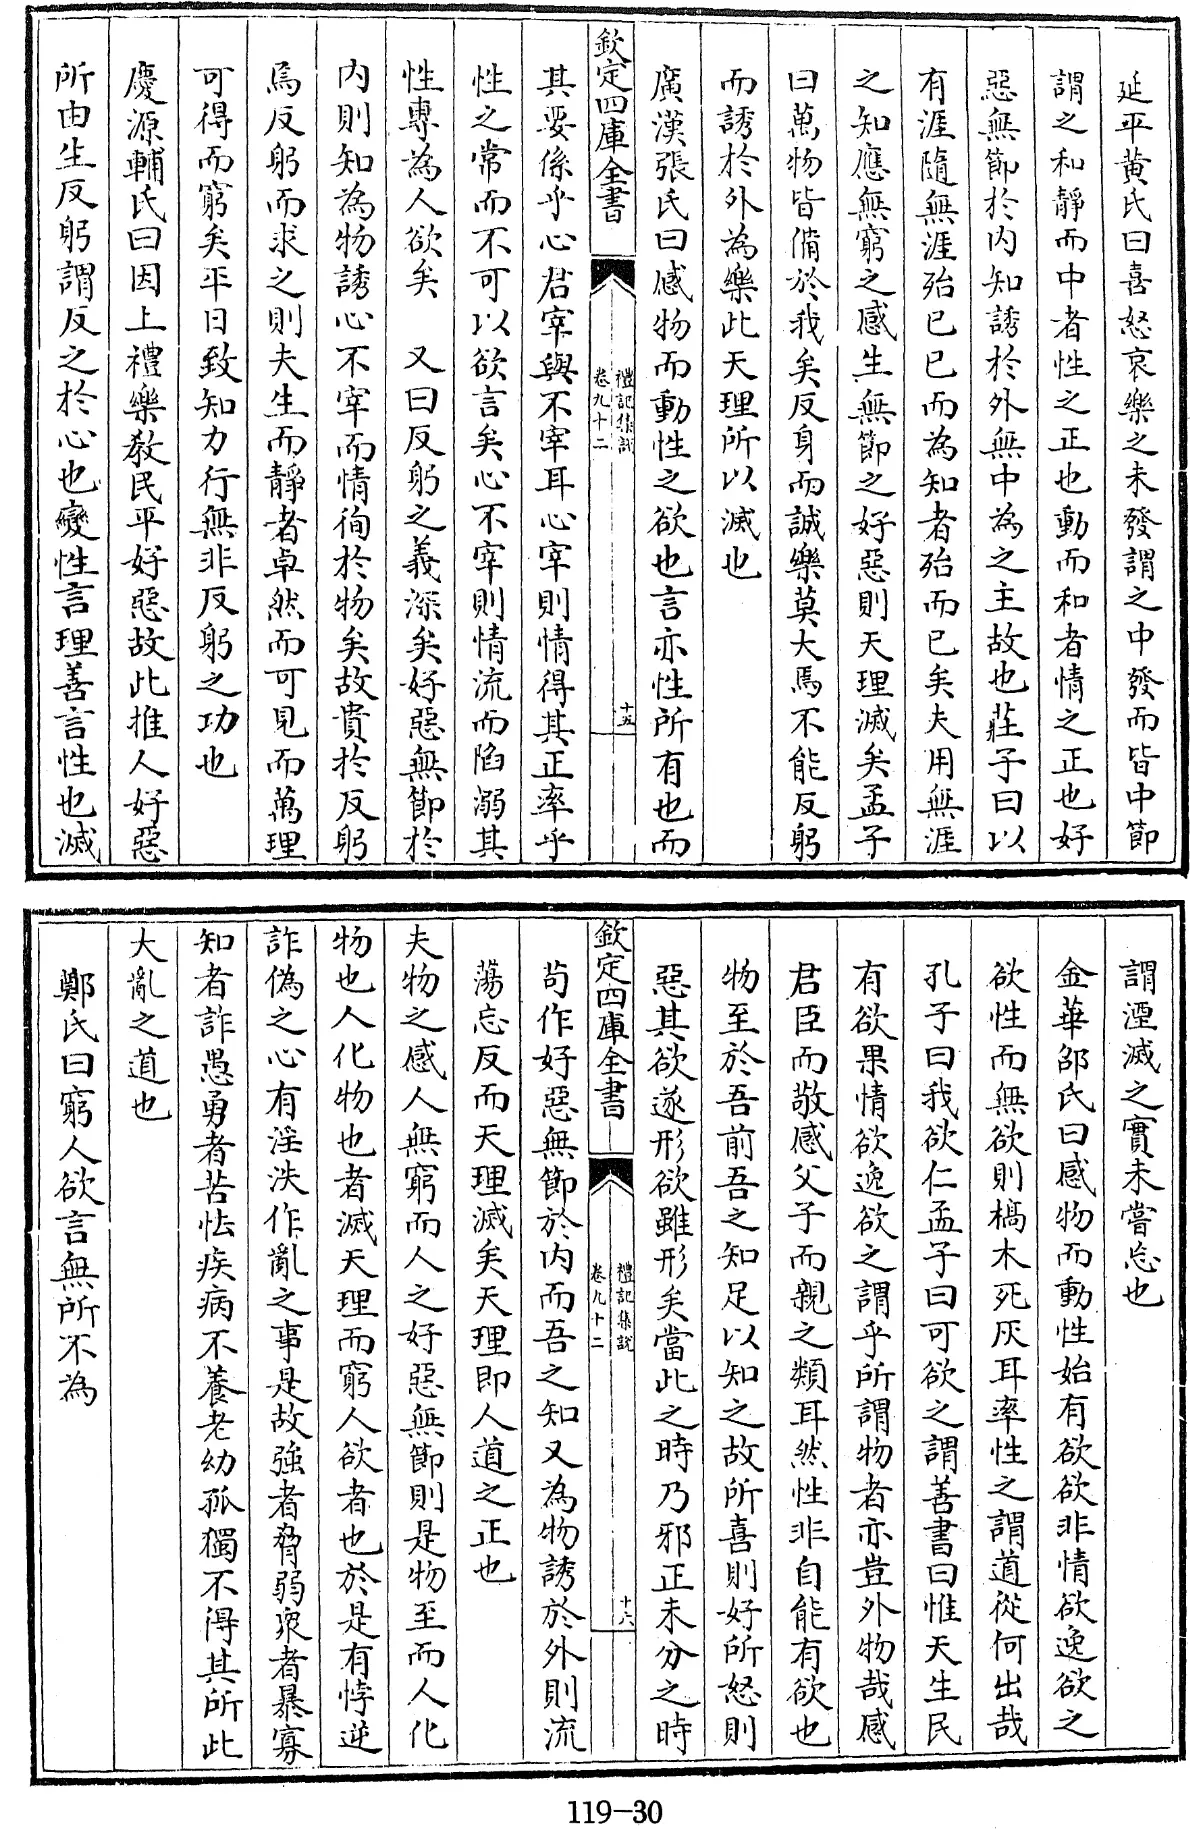 延平黄氏曰喜怒哀樂之未發謂之中發而皆中節
謂之和靜而中者性之正也動而和者情之正也好
惡無節於内知誘於外無中為之主故也莊子曰以
有涯隨無涯殆已已而為知者殆而已矣夫用無涯
之知應無窮之感生無節之好惡則天理滅矣孟子
曰萬物皆備於我矣反身而誠樂莫大焉不能反躬
而誘於外為樂此天理所以滅也
廣漢張氏曰感物而動性之欲也言亦性所有也而
欽定四庫全書
禮記集說
卷九十二
十五
其要係乎心君宰與不宰耳心宰則情得其正率乎
性之常而不可以欲言矣心不宰則情流而陷溺其
性專為人欲矣　又曰反躬之義深矣好惡無節於
内則知為物誘心不宰而情徇於物矣故貴於反躬
焉反躬而求之則夫生而靜者卓然而可見而萬理
可得而窮矣平日致知力行無非反躬之功也
慶源輔氏曰因上禮樂教民平好惡故此推人好惡
所由生反躬謂反之於心也變性言理善言性也滅
謂湮滅之實未嘗忘也
金華邵氏曰感物而動性始有欲欲非情欲逸欲之
欲性而無欲則槁木死灰耳率性之謂道從何出哉
孔子曰我欲仁孟子曰可欲之謂善書曰惟天生民
有欲果情欲逸欲之謂乎所謂物者亦豈外物哉感
君臣而敬感父子而親之類耳然性非自能有欲也
物至於吾前吾之知足以知之故所喜則好所怒則
惡其欲遂形欲雖形矣當此之時乃邪正未分之時
欽定四庫全書
禮記集說
卷九十二
十六
苟作好惡無節於内而吾之知又為物誘於外則流
蕩忘反而天理滅矣天理即人道之正也
夫物之感人無窮而人之好惡無節則是物至而人化
物也人化物也者滅天理而窮人欲者也於是有悖逆
詐偽之心有淫泆作亂之事是故強者脅弱衆者暴寡
知者詐愚勇者苦怯疾病不養老幼孤獨不得其所此
大亂之道也
鄭氏曰窮人欲言無所不為
119-30